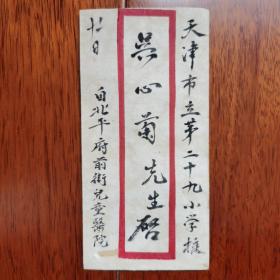 天津市立第二十九小学校
吴心蘭先生啓
自北平府前街兒童醫院
廿日